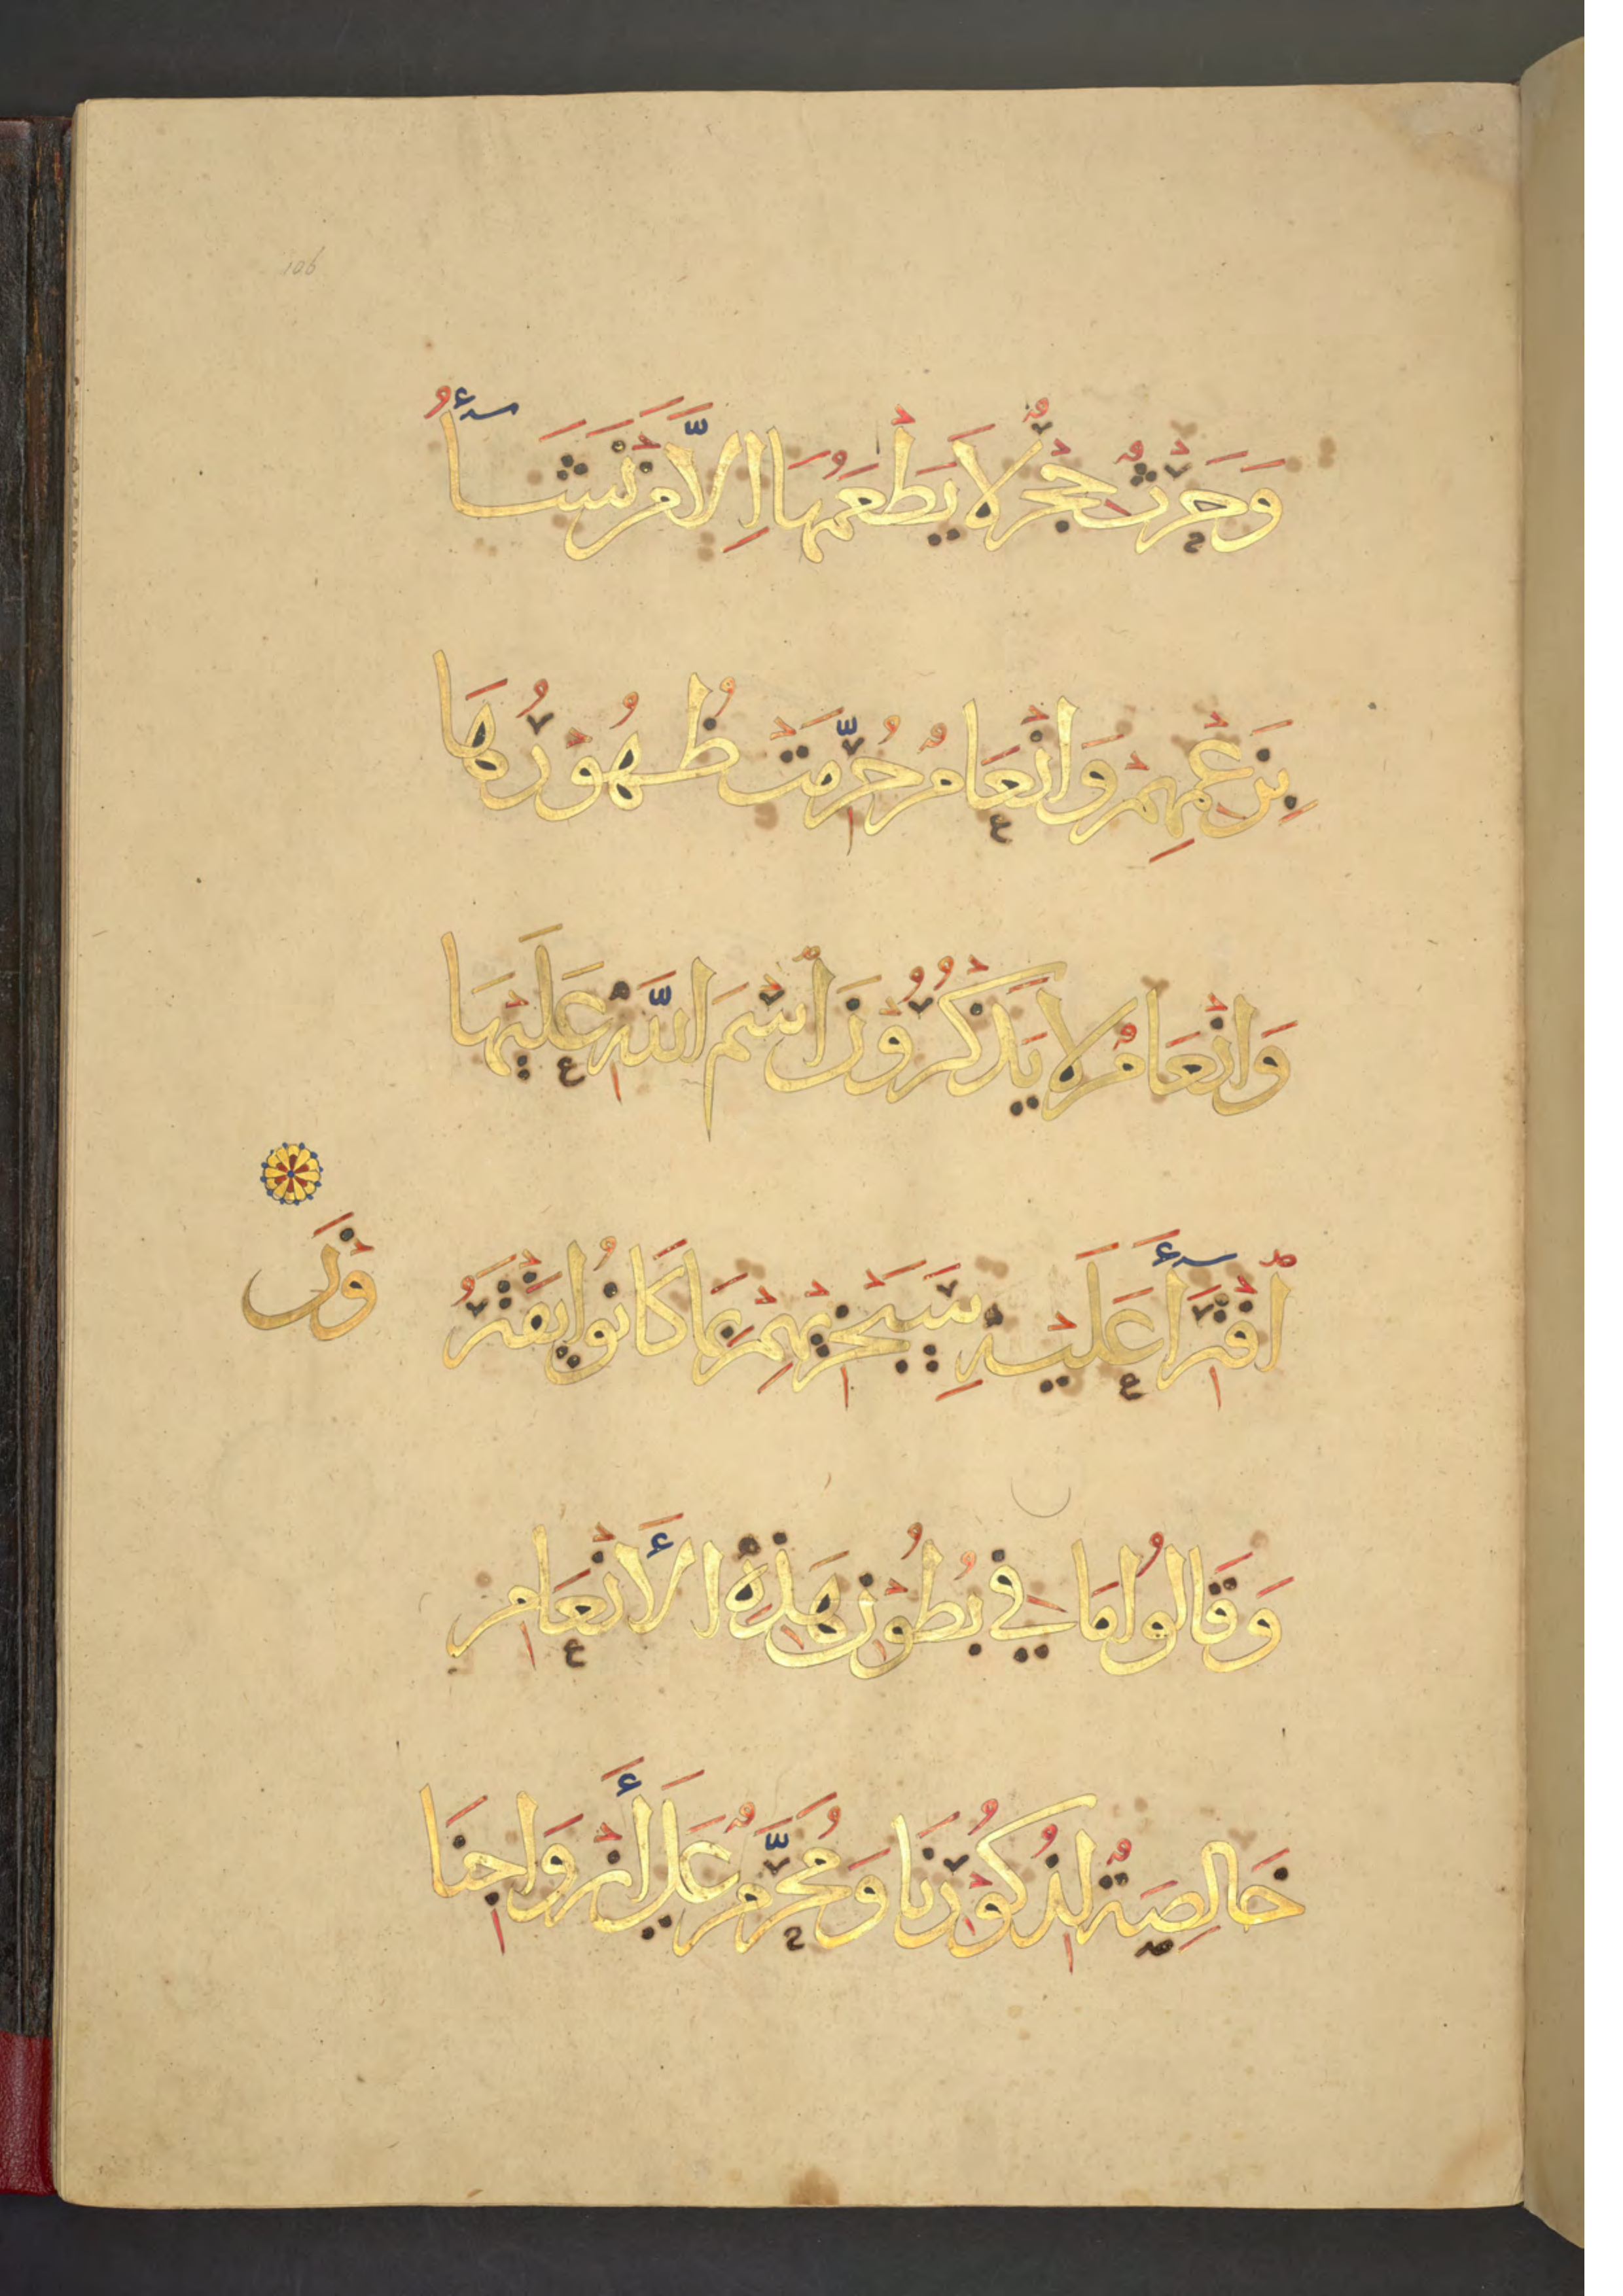 106
وَحَرْثٌ حِجْرٌ لَا يَطْعَمُهَا إِلَّا مَنْ نَشَاءُ
بِزَعْمِهِمْ وَانْعَامٌ حُرِّمَتْ ظُهُوْرُهَا
وَانْعَامٌ لَا يَذْكُرُوْنَ اسْمَ اللَّهِ عَلَيْهَا
افْتِرَآءً عَلَيْهِ سَيَجْزِيْهِمْ بِمَا كَانُوا يَفْتَرُ
وْنَ
وَقَالُوا مَا فِي بُطُوْنِ هَذِهِ الأَنْعَامِ
خَالِصَةٌ لِذُكُوْرِنَا وَمُحَرَّمٌ عَلَى أَزْوَاجِنَا